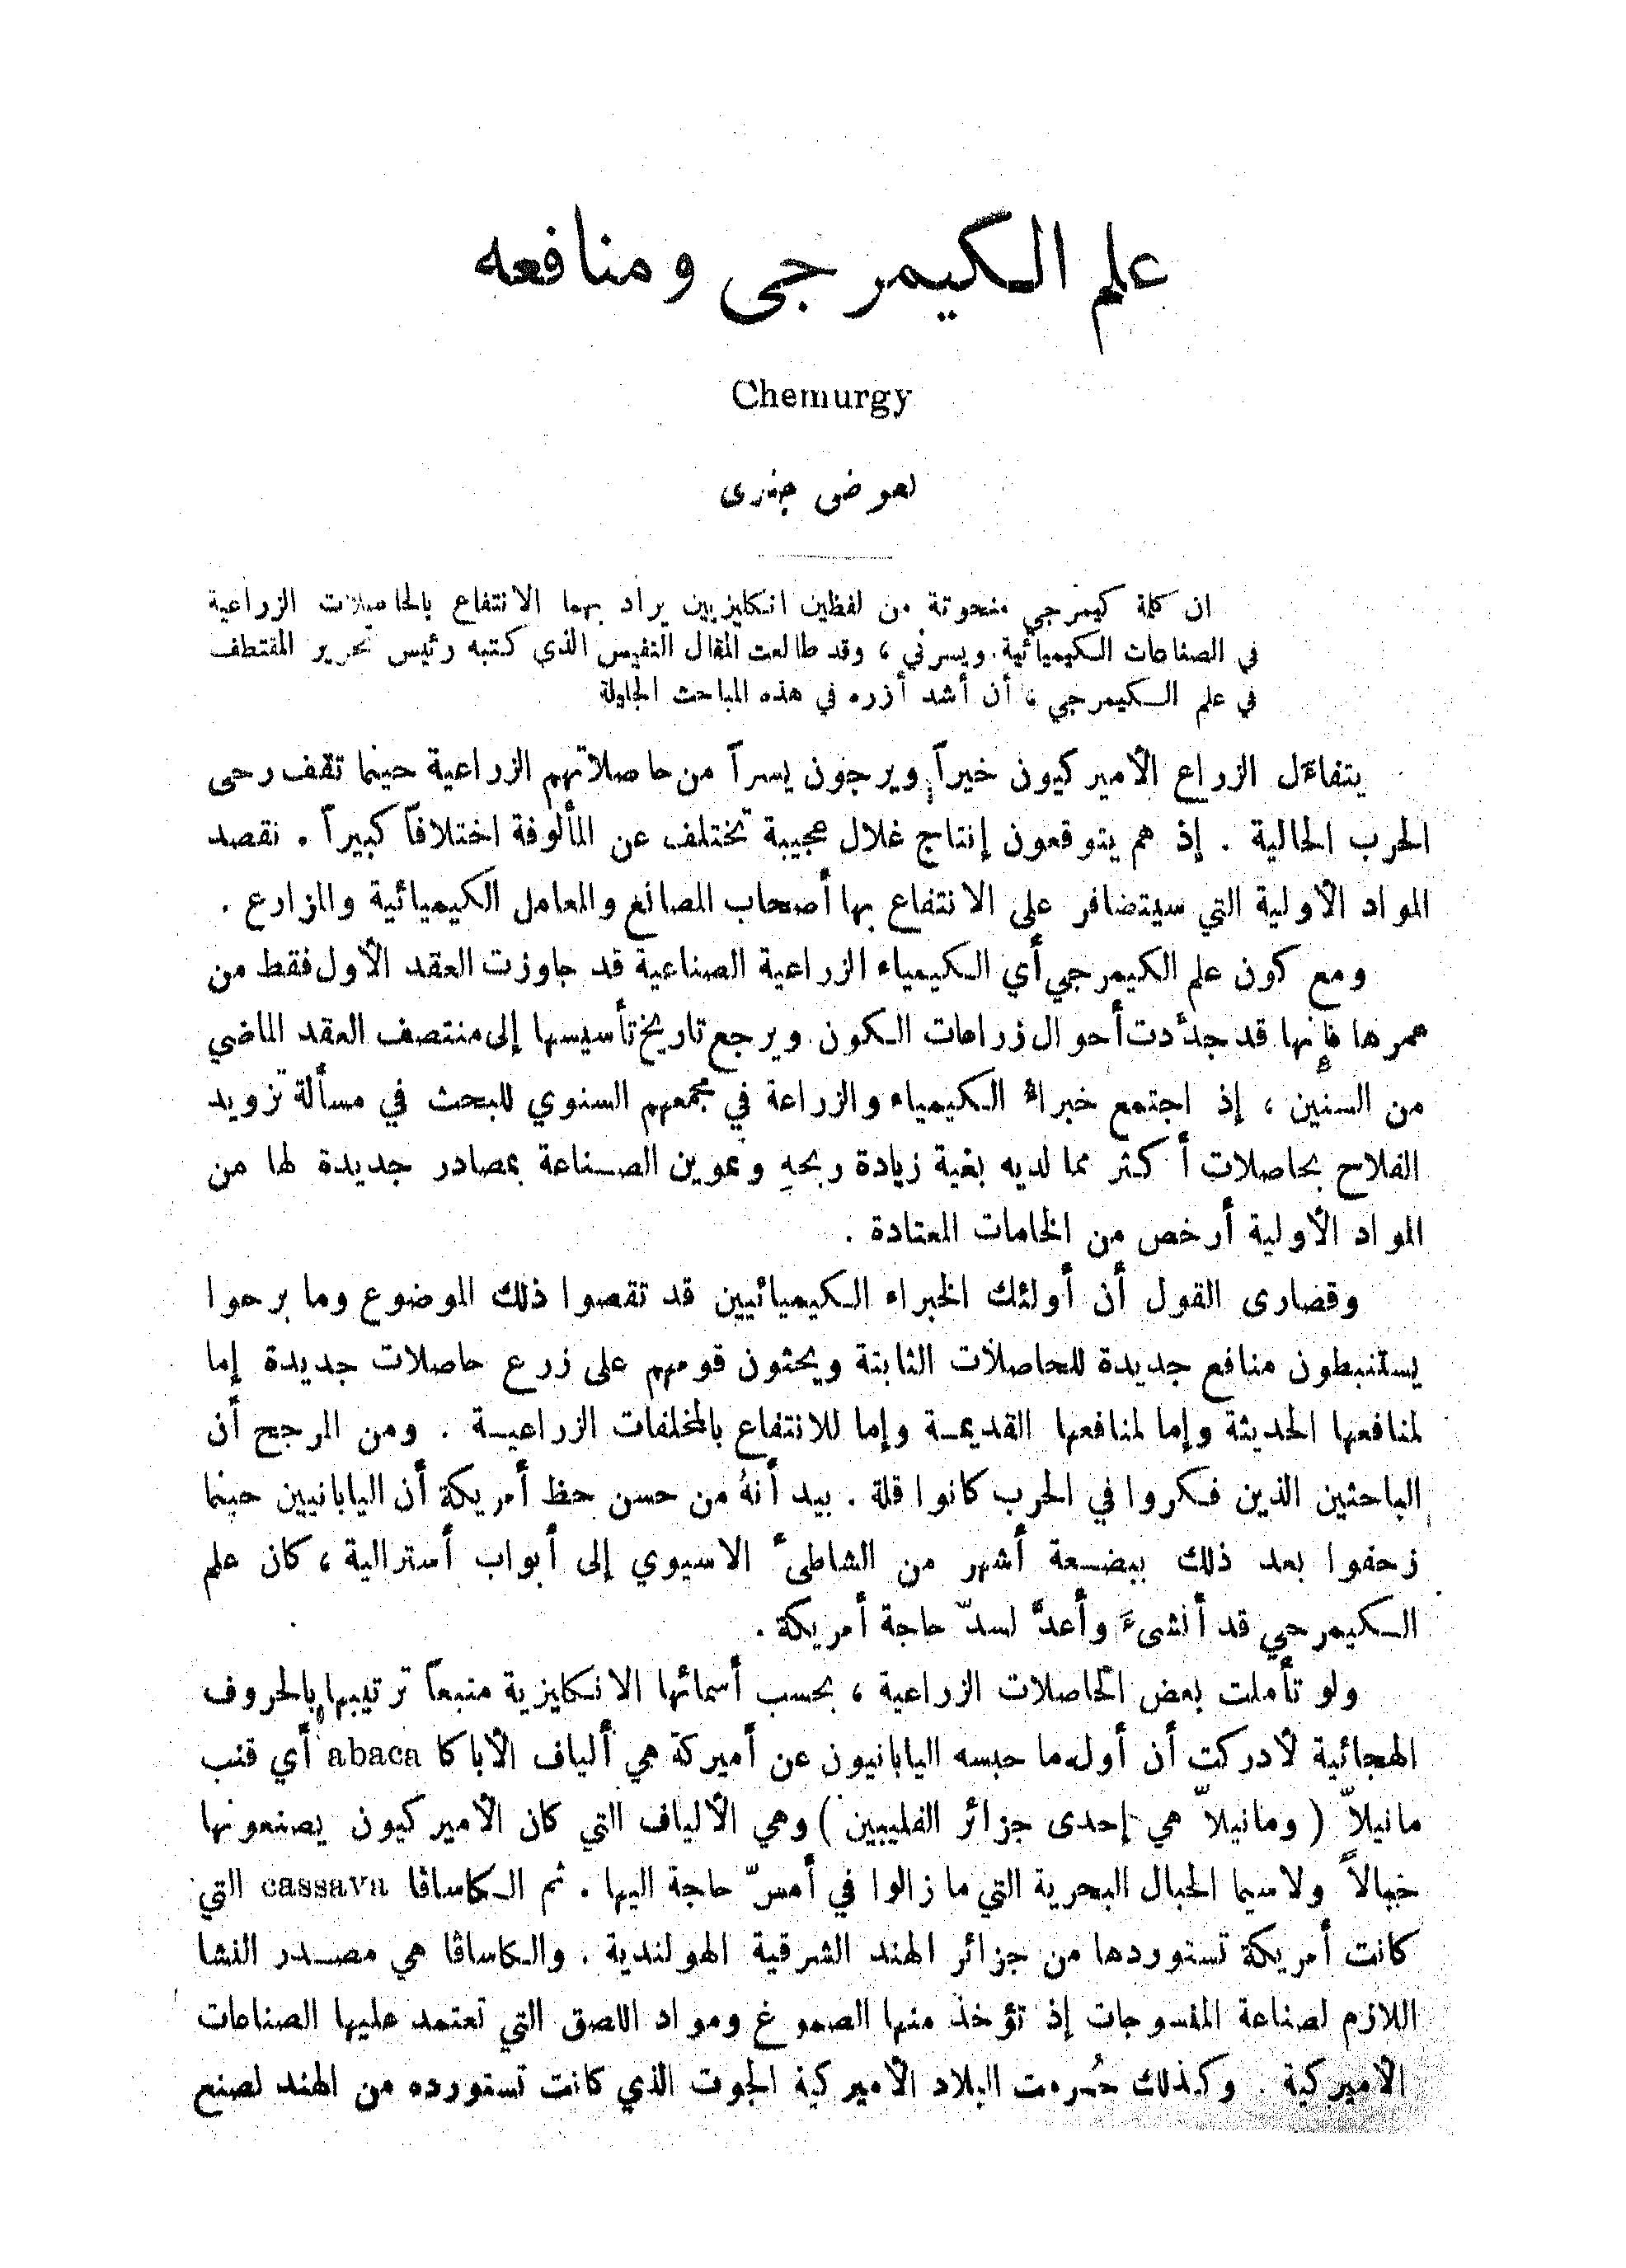 علم الكيمرجى ومنافعه
Chemurgy
لعوض جندى
ان كلمة كيمرجي منحوتة من لفظين انكليزيين يراد بهما الانتفاع بالحاصلات الزراعية
في الصناعات الكيميائية. ويسرني ، وقد طالعت المقال النفيس الذي كتبه رئيس تحرير المقتطف
في علم الكيمرجي ، أن أشد أزره في هذه المباحث الجليلة
يتفاءَل الزراع الأميركيون خيراً ويرجون يسراً من حاصلاتهم الزراعية حينما تقف رحى
الحرب الحالية . إذ هم يتوقعون إنتاج غلال عجيبة تختلف عن المألوفة اختلافاً كبيراً . نقصد
المواد الأولية التي سيتضافر على الانتفاع بها أصحاب المصانع والمعامل الكيميائية والمزارع .
ومع كون علم الكيمرجي أي الكيمياء الزراعية الصناعية قد جاوزت العقد الأول فقط من
عمرها فإنها قد جدَّدت أحوال زراعات الكون . ويرجع تاريخ تأسيسها إلى منتصف العقد الماضي
من السنين ، إذ اجتمع خبراءُ الكيمياء والزراعة في مجمعهم السنوي للبحث في مسألة تزويد
الفلاح بحاصلات أكثر مما لديه بغية زيادة ربحهِ وتموين الصناعة بمصادر جديدة لها من
المواد الأولية أرخص من الخامات المعتادة .
وقصارى القول أن أولئك الخبراء الكيميائيين قد تقصوا ذلك الموضوع وما برحوا
يستنبطون منافع جديدة للحاصلات الثابتة ويحثون قومهم على زرع حاصلات جديدة إما
لمنافعها الحديثة وإما لمنافعها القديمة وإما للانتفاع بالمخلفات الزراعية . ومن المرجح أن
الباحثين الذين فكروا في الحرب كانوا قلة . بيد أنهُ من حسن حظ أمريكة أن اليابانيين حينما
زحفوا بعد ذلك ببضعة أشهر من الشاطىء الاسيوي إلى أبواب أسترالية ، كان علم
الكيمرجي قد أنشىءَ وأعدَّ لسدّ حاجة أمريكة .
ولو تأملت بعض الحاصلات الزراعية ، بحسب أسمائها الانكليزية متبعاً ترتيبها بالحروف
الهجائية لأدركت أن أول ما حبسه اليابانيون عن أميركة هي ألياف الأباكا abaca أي قنب
مانيلاّ ( ومانيلاّ هي إحدى جزائر الفليبين ) وهي الألياف التي كان الأميركيون يصنعونها
حبالاً ولاسيما الحبال البحرية التي ما زالوا في أمسّ حاجة اليها . ثم الكاساڤا cassava التي
كانت أمريكة تستوردها من جزائر الهند الشرقية الهولندية . والكاساڤا هي مصدر النشا
اللازم لصناعة المنسوجات إذ تؤخذ منها الصموغ ومواد اللصق التي تعتمد عليها الصناعات
الأميركية . وكذلك حُرمت البلاد الأميركية الجوت الذي كانت تستورده من الهند لصنع